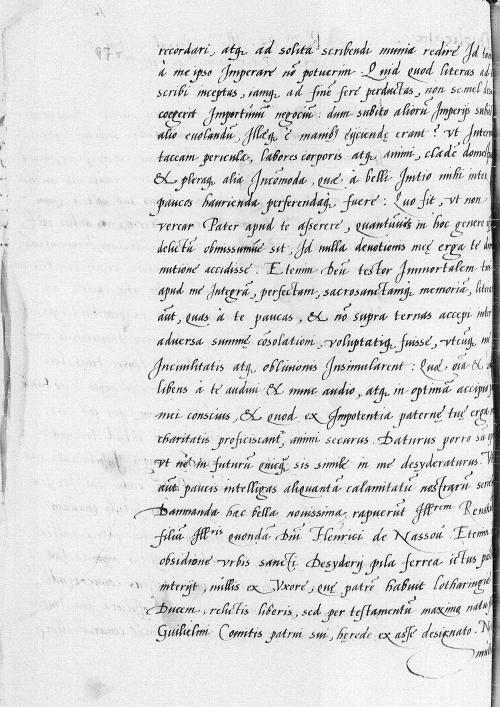 recordari, atq₃ ad solita scribendi munia redire Id
à me ipso Imperare nō potuerim. Quid quod literas ad
scribi inceptas, iamq₃ ad finē fere perductas, non semel
coegerit Importunū negociū: dum subito alioru Imperijs
alio euolandū, Illęq₃ è manib₃ eijciendę erant? vt
taceam pericula, labores corporis atq₃ animi, cladē
& pleraq₃ alia Incōmoda, quæ à belli Initio mihi inter
paucos haurienda perferendaq₃ fuere: Quo fit, vt non
verear Pater apud te asserere, quantūuis in hoc genere
delictū obmissumue sit, Id nulla deuotionis męę erga te
nutione accidisse. Etenim Deū testor Immortalem
apud me Integrā, perfectam, sacrosanctamq₃ memoriā,
aūt, quas à te paucas, & nō supra ternas accepi inter
adversa summę cōsolationi, voluptatiq₃ fuisse, vtcūq₃
Inciuilitatis atq₃ obliuionis Insimularent: Quæ oīa &
libens à te audiui & nunc audio, atq₃ in optimā
mei conscius, & quod ex Impotentia paternę tuę erga
charitatis proficiscant, animi securus. Daturus porro
vt nō in futurū quicq₃ sis simile in me desyderaturus.
aūt paucis intelligas aliquantā calamitatū nostrarū
Damnanda hæc bella nouissima, rapuerūt Illrem
filiū Illris quondā Dni Henrici de Nassou. Etenim
obsidione vrbis sancti Desyderij pila ferrea ictus
interijt, nullis ex Vxore, quę patrē habuit Lotharingię
Ducem, relictis liberis, sed per testamentū maximo
Guilielmi Comitis patrui sui, hęrede ex asse designato.